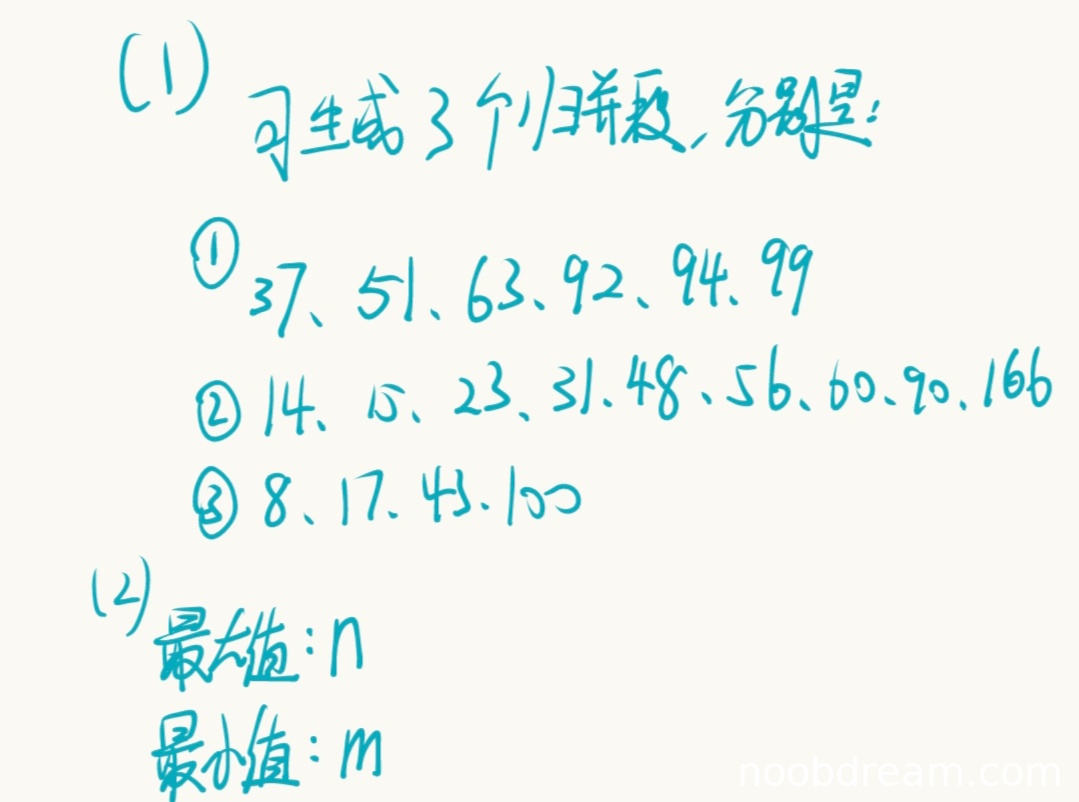 (1)
可生成3个归并段，分别是：
① 37、51、63、92、94、99
② 14、15、23、31、48、56、60、90、166
③ 8、17、43、100
(2)
最大值：n
最小值：m
noobdream.com